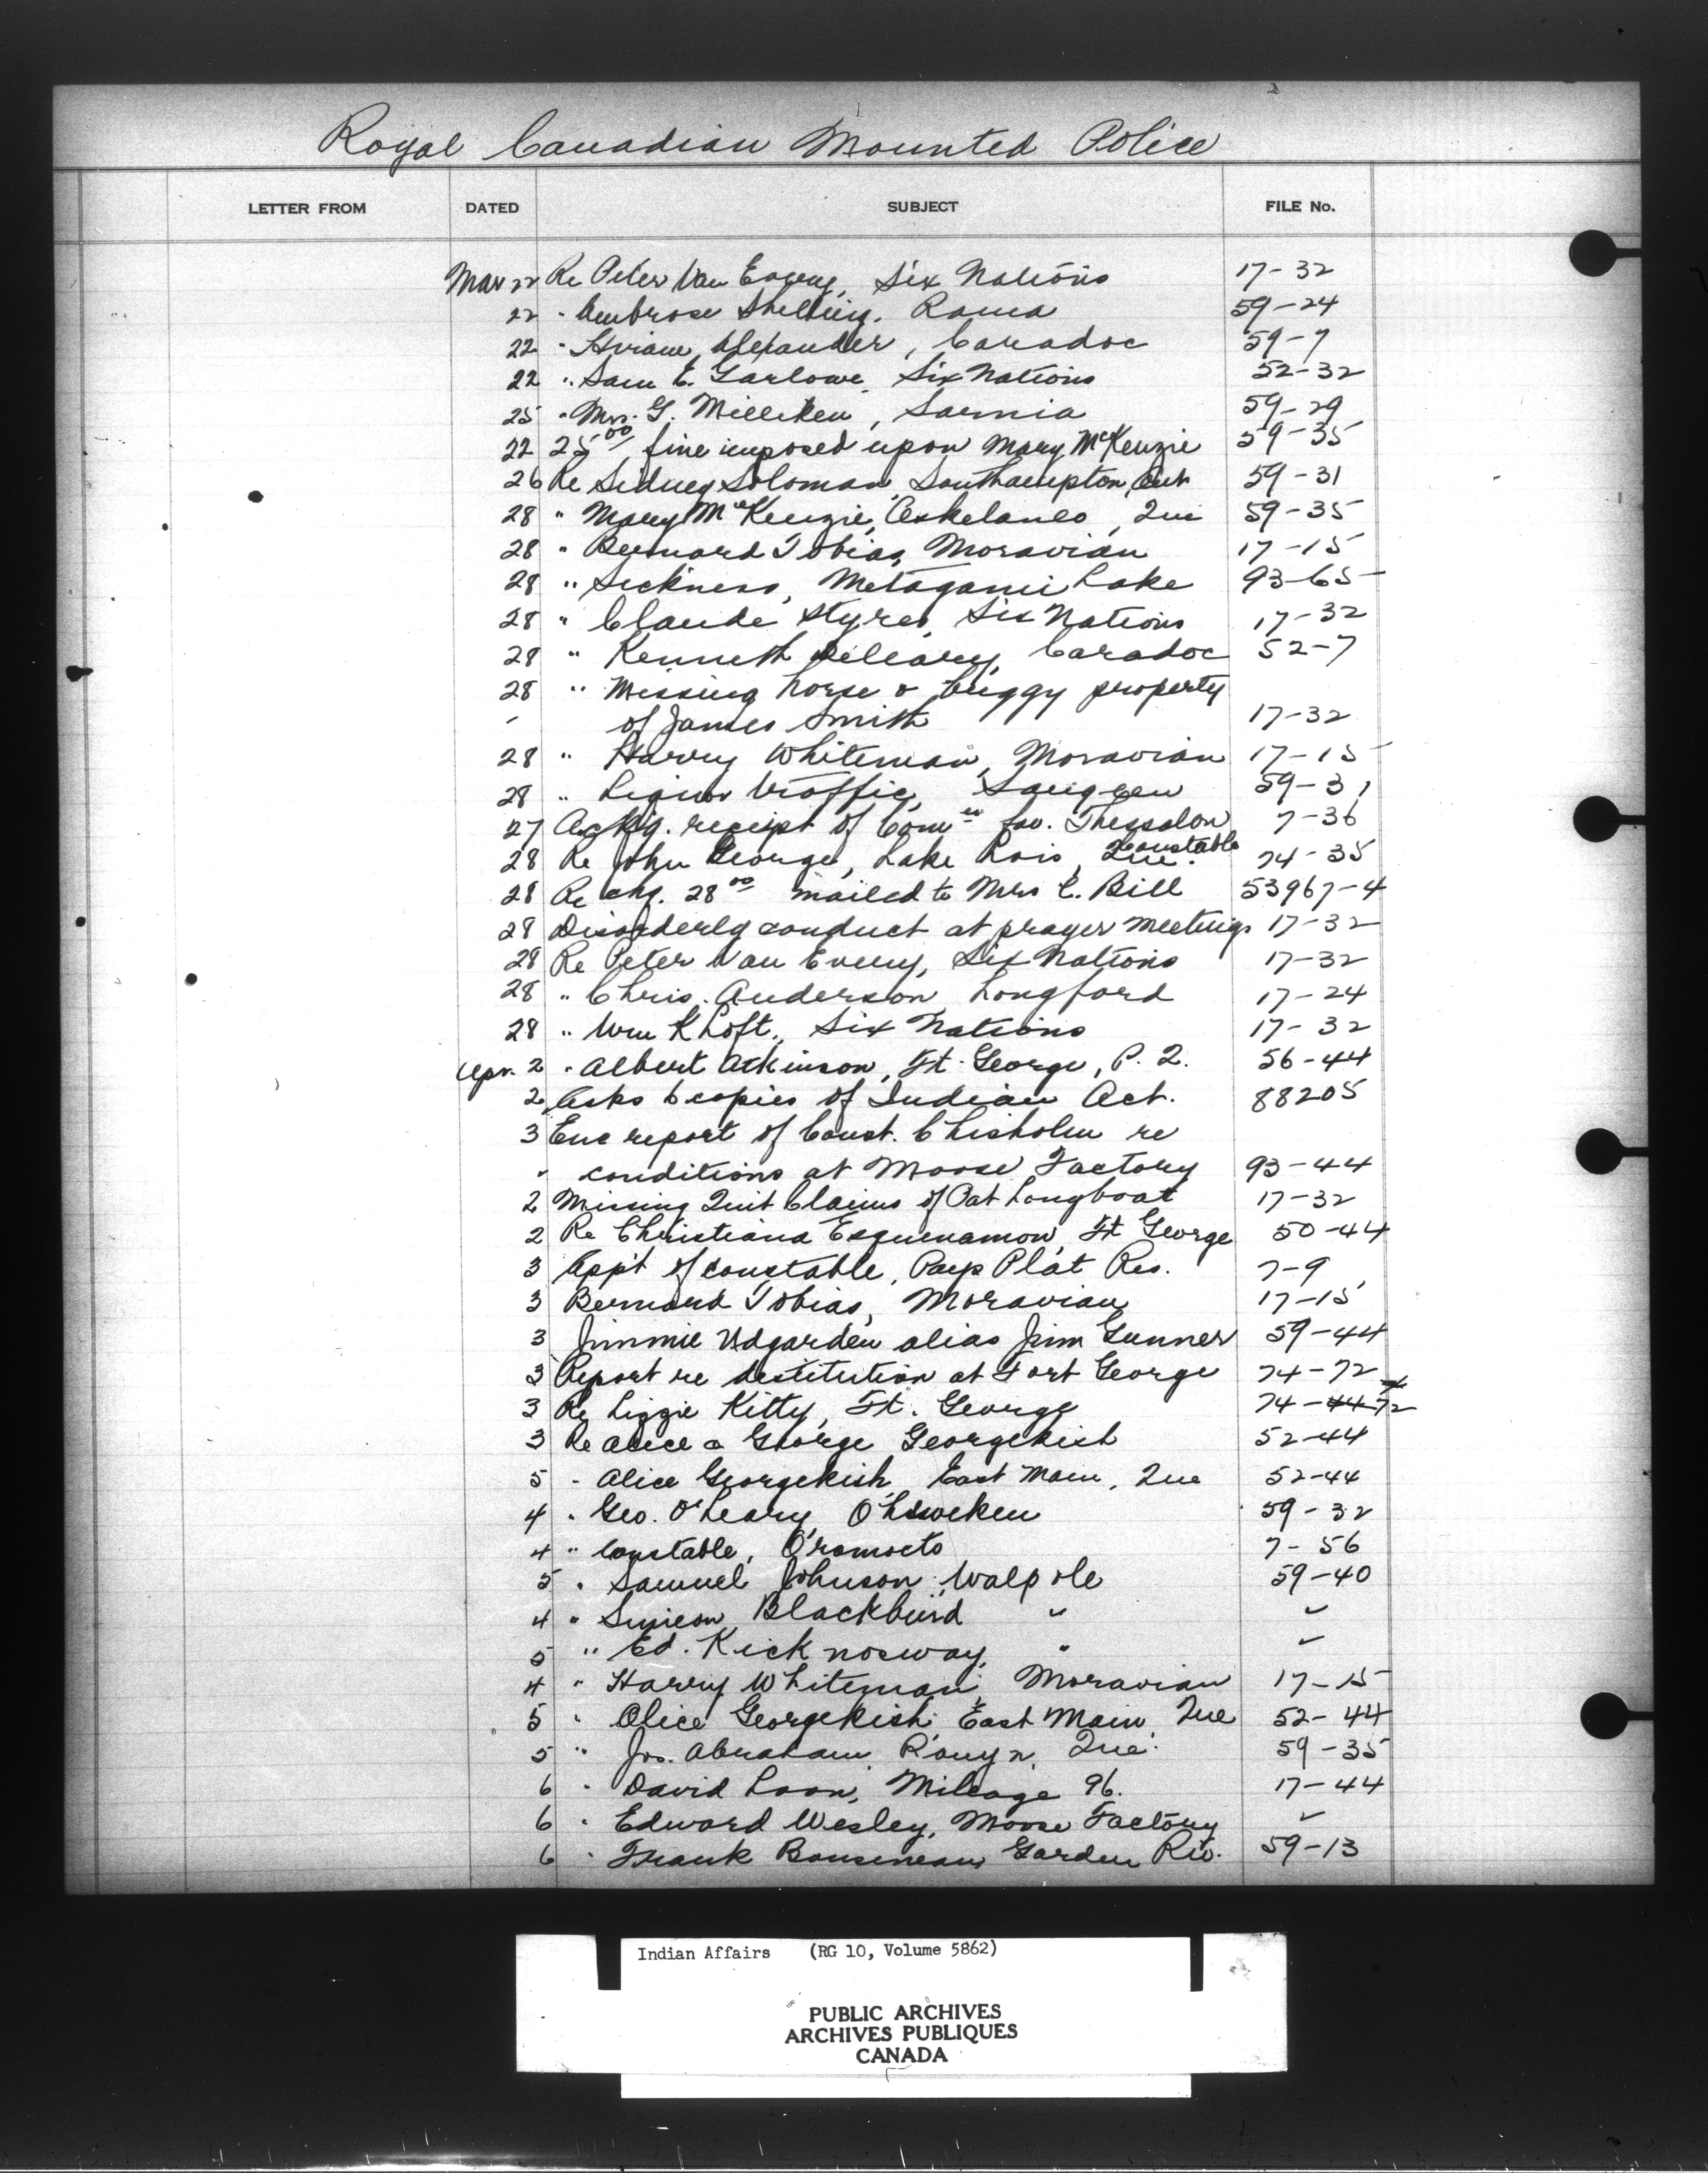 Royal Canadian Mounted Police
LETTER FROM DATED SUBJECT FILE No.
Mar 22 Re Peter Van Every, Six Nations 17-32
22 " Ambrose Shelling, Rama 59-24
22 " Hiram Alexander, Caradoc 59-7
22 " Sam E. Garlowe, Six Nations 52-32
25 " Mrs. G. Milliken, Sarnia 59-29
22 25.00 fine imposed upon Mary McKenzie 59-35
26 Re Sidney Soloman, Southampton, Ont 59-31
28 " Mary McKenzie, , Que 59-35
28 " Bernard Tobias, Moravian 17-15
28 " Sickness, Metagami Lake 93-65
28 " Claude Styres, Six Nations 17-32
28 " Kenneth Deleary, Caradoc 52-7
28 " Missing horse & buggy property
" of James Smith 17-32
28 " Harry Whiteman, Moravian 17-15
28 " Liquor traffic, Saugeen 59-31
27 Ackg. receipt of Comn fav. Thessalon 7-36
28 Re John George, Lake Lois, Que. constable 74-35
28 Re chq. 28.00 mailed to Mrs C. Bill 53967-4
28 Disorderly conduct at prayer meetings 17-32
28 Re Peter Van Every, Six Nations 17-32
28 " Chris. Anderson Longford 17-24
28 " Wm K Loft, Six Nations 17-32
Apr. 2 " Albert Atkinson, Ft. George, P. Q. 56-44
2 Asks 6 copies of Indian Act. 88205
3 Enc report of Const. Chisholm re
" conditions at Moose Factory 93-44
2 Missing Quit Claims of Pat Longboat 17-32
2 Re Christiana Esquenamow, Ft George 50-44
3 App't of constable, Pays Plat Res. 7-9
3 Bernard Tobias, Moravian 17-15
3 Jimmie Udgarden alias Jim Gunner 59-44
3 Report re destitution at Fort George 74-72
3 Re Lizzie Kitty, Ft. George 74-44 72
3 Re Alice & George Georgekish 52-44
5 " Alice Georgekish, East Main, Que 52-44
4 " Geo. O'Leary, Ohsweken 59-32
4 " Constable, Oromocto 7-56
5 " Samuel Johnson, Walpole 59-40
4 " Simeon Blackbird " "
5 " Ed. Kicknosway, " "
4 " Harry Whiteman, Moravian 17-15
5 " Alice Georgekish, East Main, Que 52-44
5 " Jos. Abraham, Rouyn, Que. 59-35
6 " David Loon, Mileage 96. 17-44
6 " Edward Wesley, Moose Factory "
6 " Frank Garden Riv. 59-13
Indian Affairs (RG 10, Volume 5862)
PUBLIC ARCHIVES
ARCHIVES PUBLIQUES
CANADA